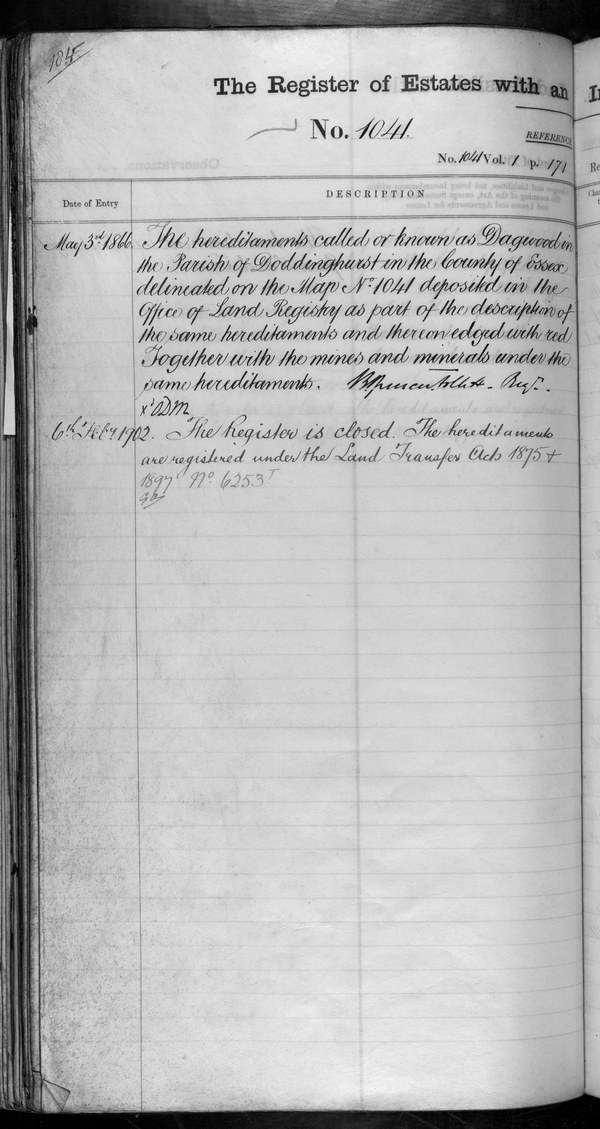 185
The Register of Estates with an In
No. 1041.
REFERENCE
No. 1041 Vol. 1 p. 171
Observations.
Date of Entry
DESCRIPTION
May 3rd 1866. The hereditaments called or known as Dagwood in
the Parish of Doddinghurst in the County of Essex
delineated on the Map No. 1041 deposited in the
Office of Land Registry as part of the description of
the same hereditaments and thereon edged with red
Together with the mines and minerals under the
same hereditaments. Brent Spencer Follett - Regr.
xd ODM
6th Feby 1902. The Register is closed. The hereditaments
are registered under the Land Transfer Acts 1875 &
1897 No 6253T